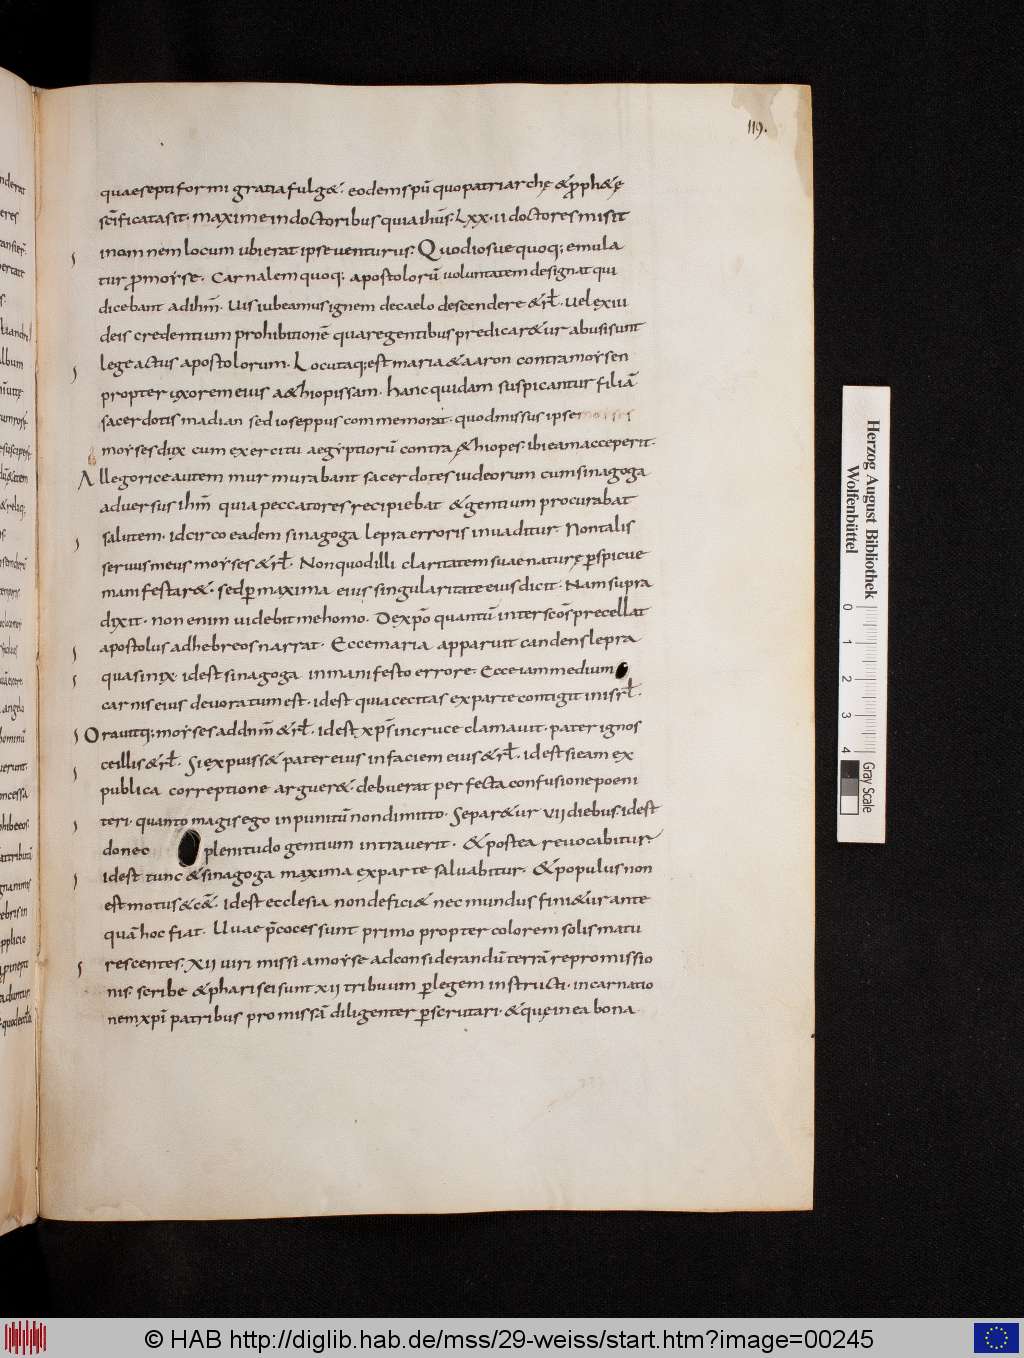 119.
quaeseptiformi gratia fulg&. eodem spū quo patriarchę & ꝓph&ę
scīficata sit. maxime in doctoribus quia ihūs. Lxx.ii doctores misit
in omnem locum ubi erat ipse venturus. Quod iosue quoq; emula
tur ꝓ moyse. Carnalem quoq; apostolorū voluntatem designat qui
dicebant ad ihm̄. Uis iubeamus ignem de caelo descendere & rł. vel ex iu
deis credentium prohibitionē qua regentibus predicar& ur abusi sunt
lege actus apostolorum. Locutaq; est maria & aaron contra moysen
propter uxorem eius a&hiopissam. hanc quidam suspicantur filiā
sacerdotis madian sed ioseppus commemorat. quod missus ipse moyses
moyses dux cum exercitu aegyptiorū contra &hiopes. ibi eam acceperit.
Allegorice autem murmurabant sacerdotes iudeorum cum sinagoga
adversus ihm̄ quia peccatores recipiebat & gentium procurabat
salutem. idcirco eadem sinagoga lepra erroris invaditur. Non talis
servus meus moyses & rł. Non quod illi claritatem suae naturę ꝑspicue
manifestar&. sed ꝑ maxima eius singularitate eius dicit. Nam supra
dixit. non enim videbit me homo. De xpō quantū inter scōs precellat
apostolus ad hebreos narrat. Ecce maria apparuit candens lepra
quasi nix idest sinagoga in manifesto errore. Ecce iam medium
carnis eius devoratum est. idest quia cecitas ex parte contigit in isrł.
Oravitq; moyses ad dnm̄ & rł. idest xp̄s in cruce clamavit. pater ignos
ce illis & rł. Si expuiss& pater eius in faciem eius & rł. idest si eam ex
publica correptione arguer&. debuerat perfecta confusione poeni
teri. quanto magis ego inpunitū non dimitto. Separ&ur vii diebus. idest
donec plenitudo gentium intraverit. & postea revocabitur.
idest tunc & sinagoga maxima ex parte salvabitur. & populus non
est motus & c&̄. idest ecclesia non defici& nec mundus fini&ur ante
quā hoc fiat. Uvae p̄coces sunt primo propter colorem solis matu
rescentes. Xii viri missi a moyse ad considerandū terrā repromissio
nis. scribe & pharisei sunt xii tribuum ꝑ legem instructi. incarnatio
nem xpī patribus promissā diligenter ꝑscrutari. & quę in ea bona
Herzog August Bibliothek
Wolfenbüttel
0 1 2 3 4
Gray Scale
© HAB http://diglib.hab.de/mss/29-weiss/start.htm?image=00245